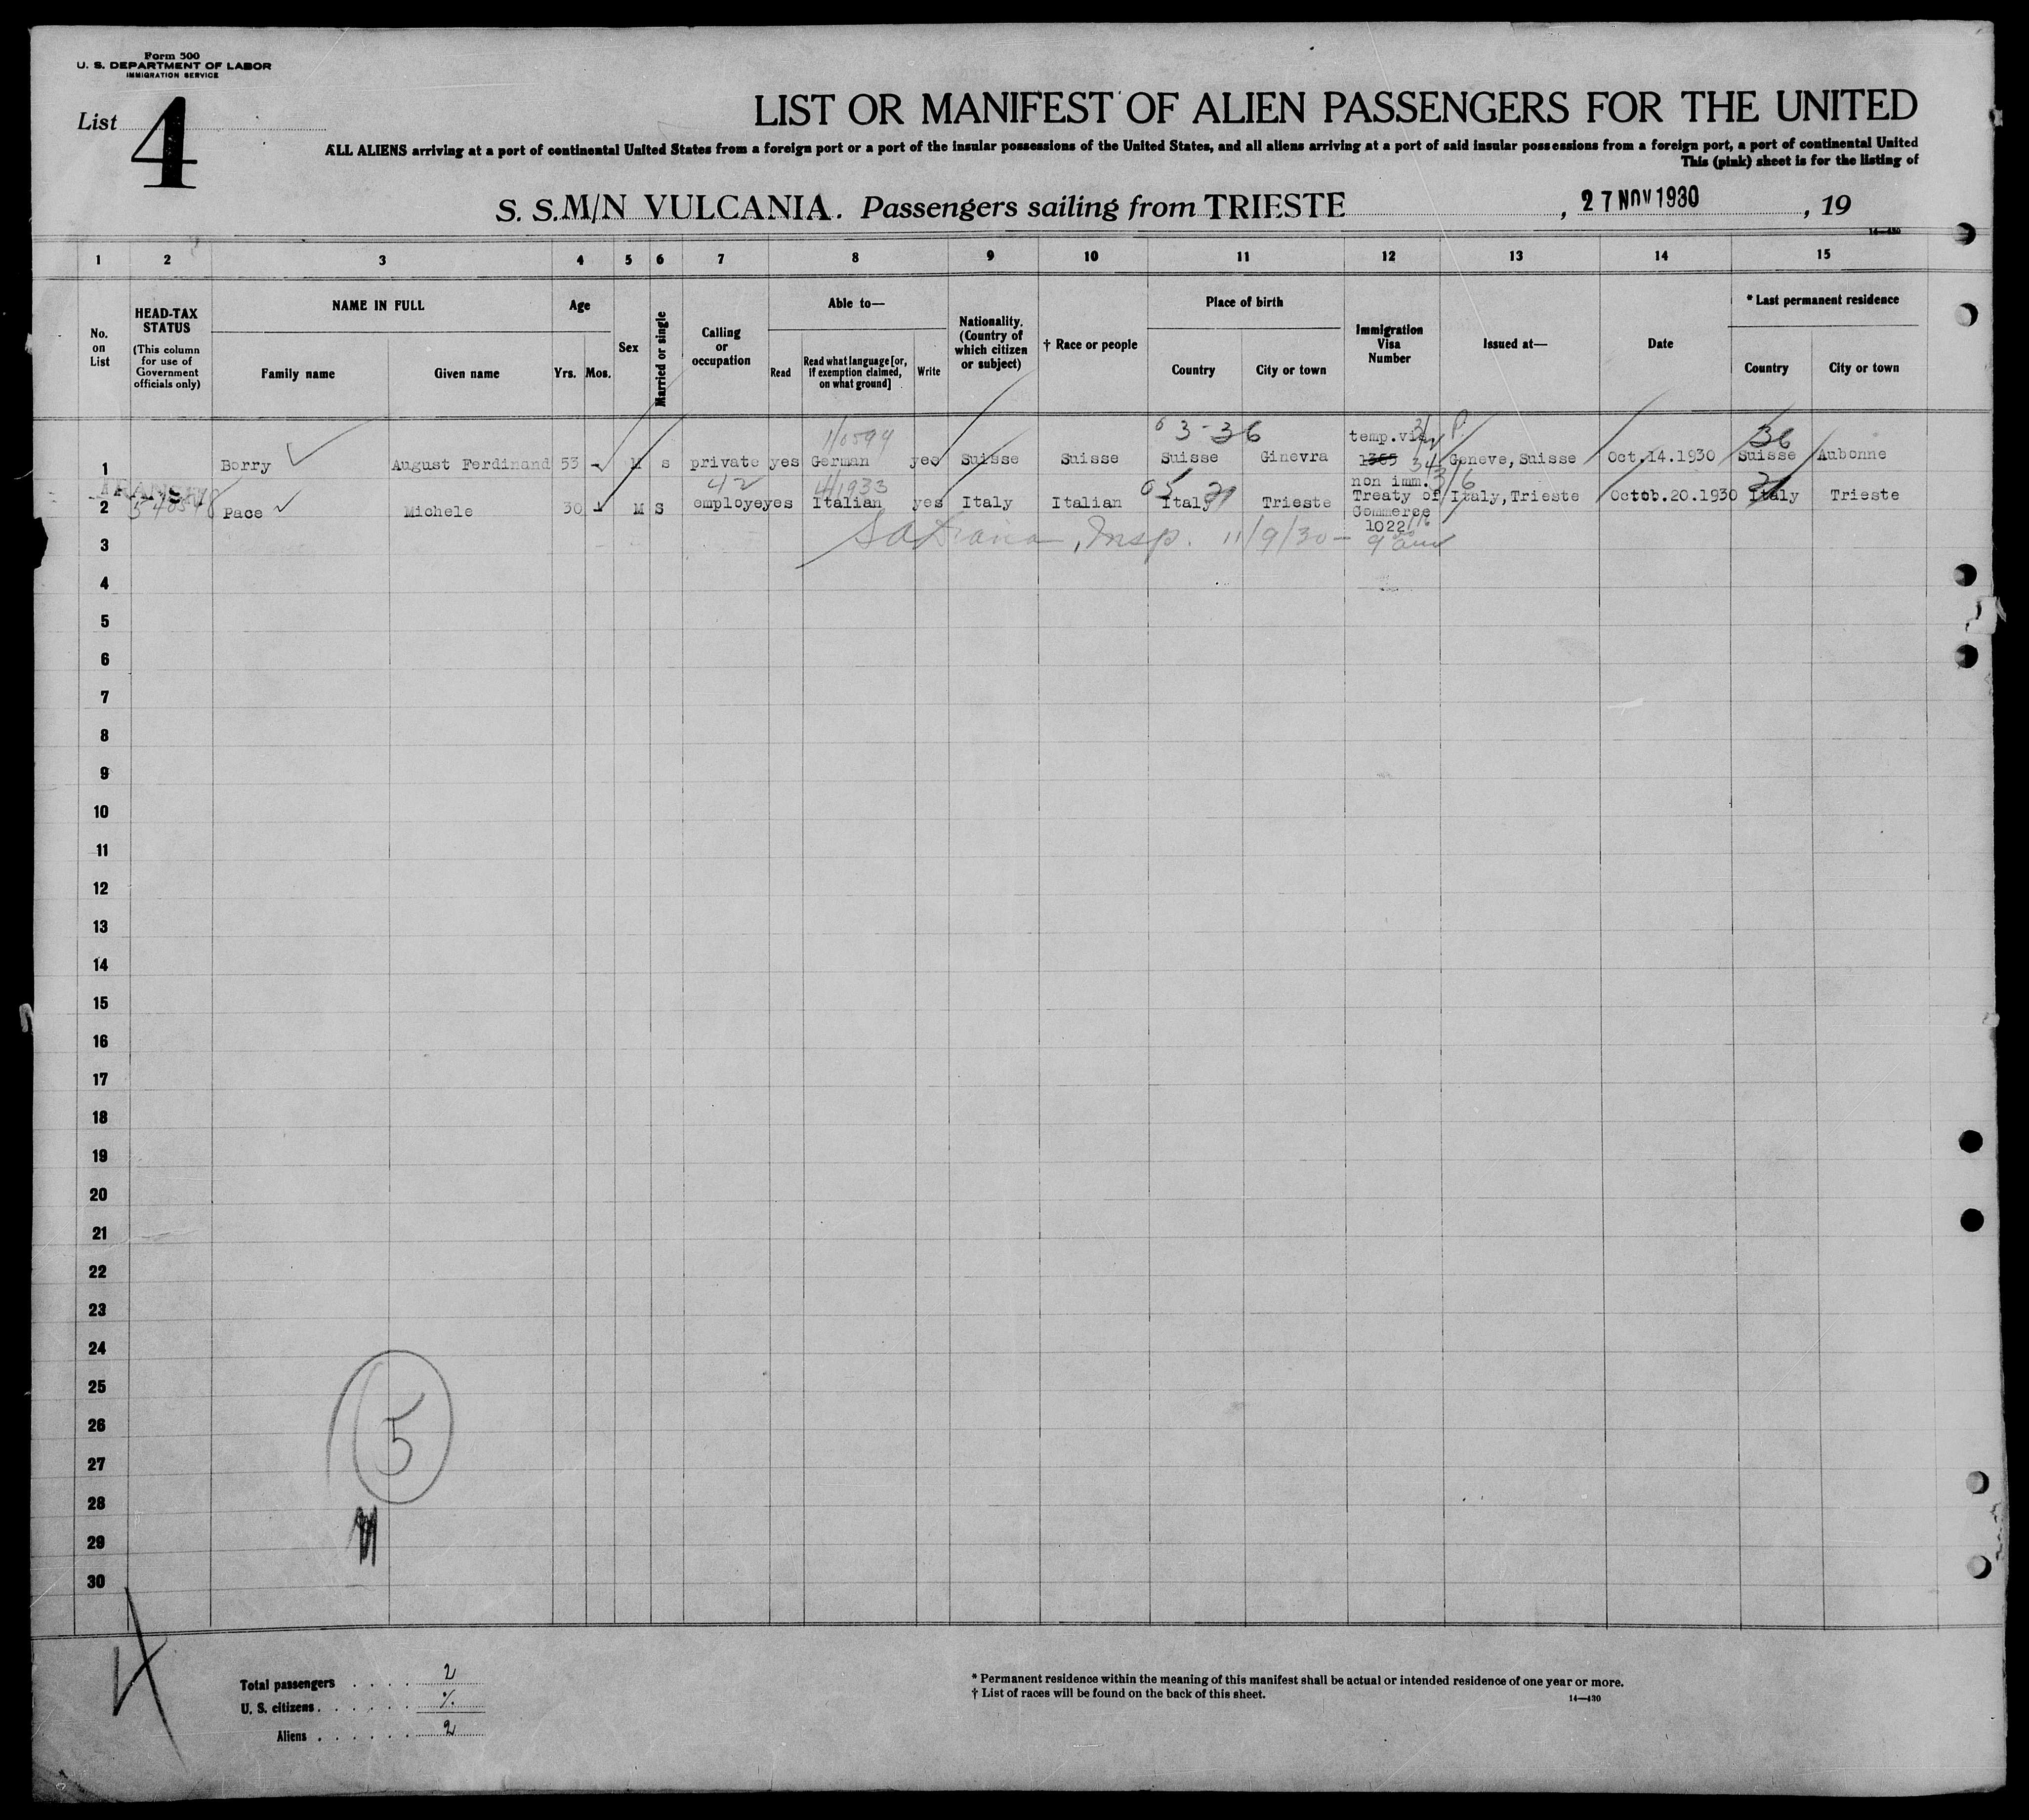 Form 500
U. S. DEPARTMENT OF LABOR
IMMIGRATION SERVICE
List 4
LIST OR MANIFEST OF ALIEN PASSENGERS FOR THE UNITED
ALL ALIENS arriving at a port of continental United States from a foreign port or a port of the insular possessions of the United States, and all aliens arriving at a port of said insular possessions from a foreign port, a port of continental United
This (pink) sheet is for the listing of
S. S. M/N VULCANIA. Passengers sailing from TRIESTE, 27 NOV 1930, 19
14—430
1 2 3 4 5 6 7 8 9 10 11 12 13 14 15
No. on List
HEAD-TAX STATUS
(This column for use of Government officials only)
NAME IN FULL
Family name Given name
Age
Yrs. Mos.
Sex
Married or single
Calling or occupation
Able to—
Read
Read what language [or, if exemption claimed, on what ground]
Write
Nationality. (Country of which citizen or subject)
† Race or people
Place of birth
Country City or town
Immigration Visa Number
Issued at—
Date
* Last permanent residence
Country City or town
3-36
temp.
36
1 Borry August Ferdinand 53 M s private yes German yes Suisse Suisse Suisse Ginevra 1365 Geneve, Suisse Oct.14.1930 Suisse Aubonne
42
non imm.
2 Pace Michele 30 M S employe yes Italian yes Italy Italian Italy Trieste Treaty of Italy,Trieste Octob.20.1930 Italy Trieste
Commerce
1022
3 Insp. 11/9/30 - 9
4
5
6
7
8
9
10
11
12
13
14
15
16
17
18
19
20
21
22
23
24
25
26
27
28
29
30
5
Total passengers . . . . 2
U. S. citizens . . . . . . %
Aliens . . . . . . 2
* Permanent residence within the meaning of this manifest shall be actual or intended residence of one year or more.
† List of races will be found on the back of this sheet.
14—430